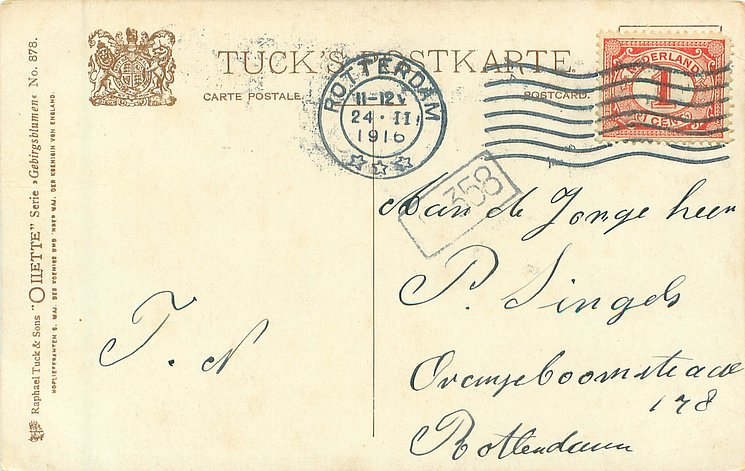 TUCK'S POSTKARTE.
CARTE POSTALE.
POSTCARD.
ROTTERDAM
11-12V
24·II
1916
NEDERLAND
1
1 CENT 1
358
Aan de Jonge heer
P. Singels
Oranjeboomstraat
178
Rotterdam
T. N
Raphael Tuck & Sons "OILETTE" Serie »Gebirgsblumen« No. 878.
HOFLIEFERANTEN S. MAJ. DES KOENIGS UND IHRER MAJ. DER KOENIGIN VON ENGLAND.